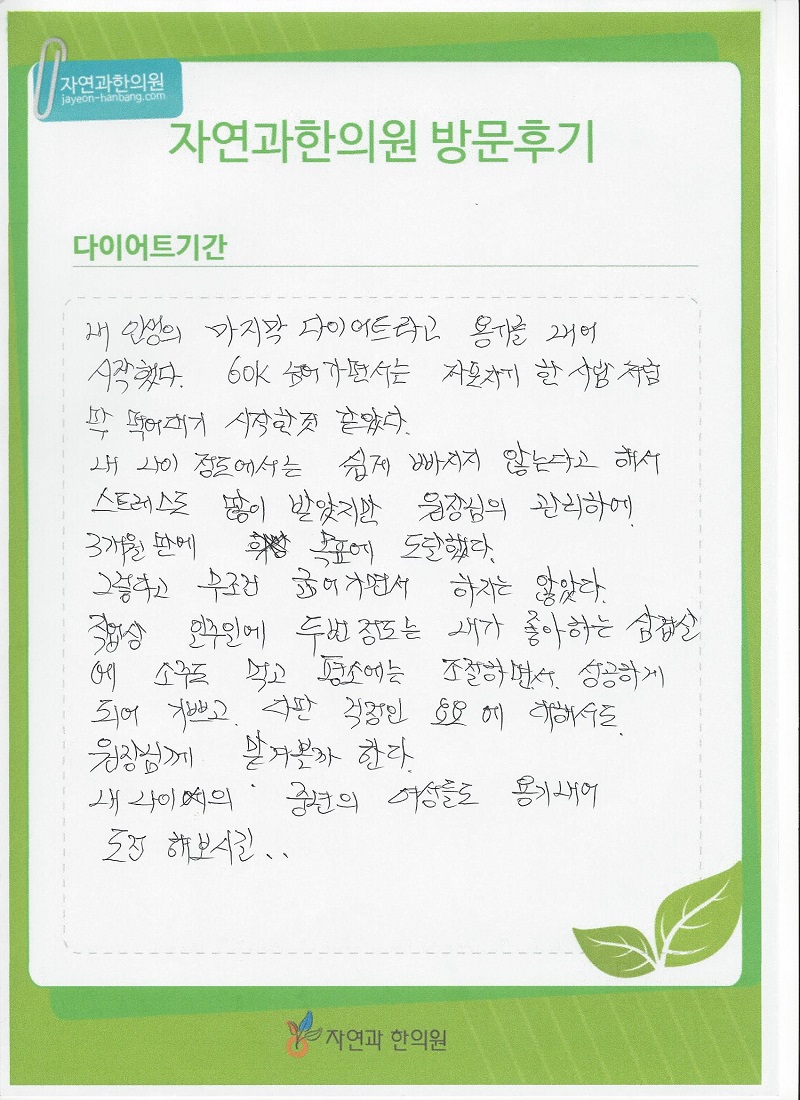 자연과한의원
jayeon-hanbang.com
자연과한의원 방문후기
다이어트기간
내 인생의 마지막 다이어트라고 용기를 내어
시작했다. 60K 넘어가면서는 자포자기 한 사람 처럼
막 먹어대기 시작한것 같았다.
내 나이 정도에서는 쉽게 빠지지 않는다고 해서
스트레스도 많이 받았지만 원장님의 관리하에
3개월 판에 목표에 도달했다.
그렇다고 무조건 굶어가면서 하지는 않았다.
직업상 일주일에 두번 정도는 내가 좋아하는 삼겹살
에 소주도 먹고 평소에는 조절하면서. 성공하게
되어 기쁘고. 다만 걱정인 요요 에 대해서도.
원장님께 맡겨볼까 한다.
내 나이에의 중년의 여성들도 용기내어
도전 해보시길..
자연과 한의원